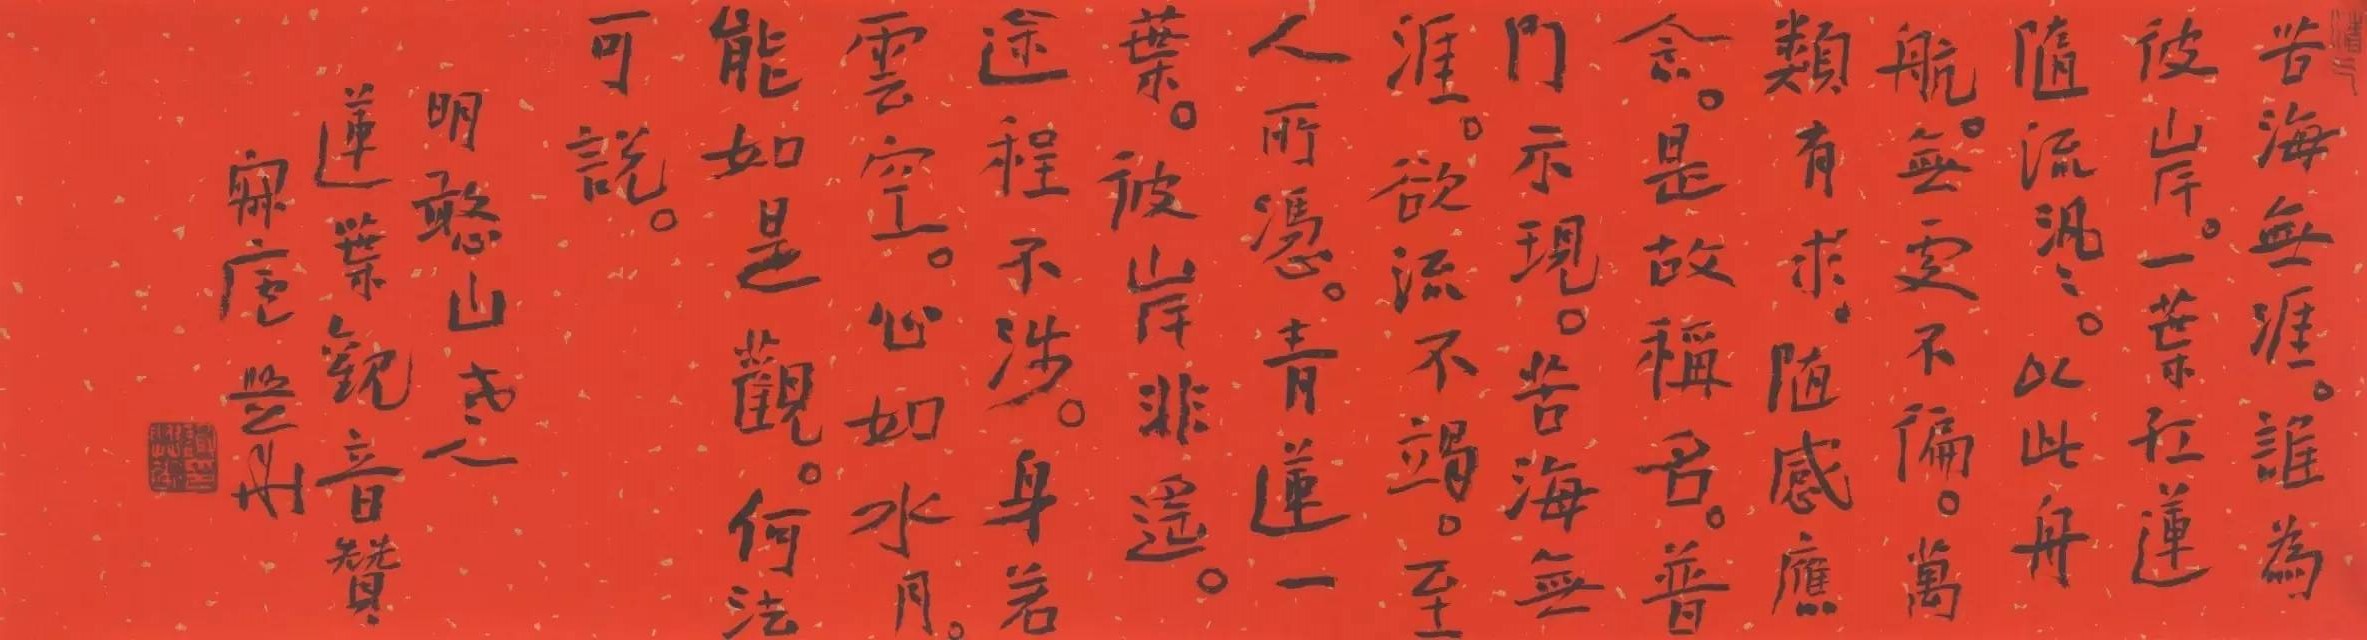 苦海無涯。誰為
彼岸。一葉紅蓮
隨流汎汎。以此舟
航。無處不徧。萬
類有求。隨感應
念。是故稱名。普
門示現。苦海無
涯。欲流不竭。至
人所憑。青蓮一
葉。彼岸非遙。
途程不涉。身若
雲空。心如水月。
能如是觀。何法
可說。
明憨山老人
蓮葉觀音贊